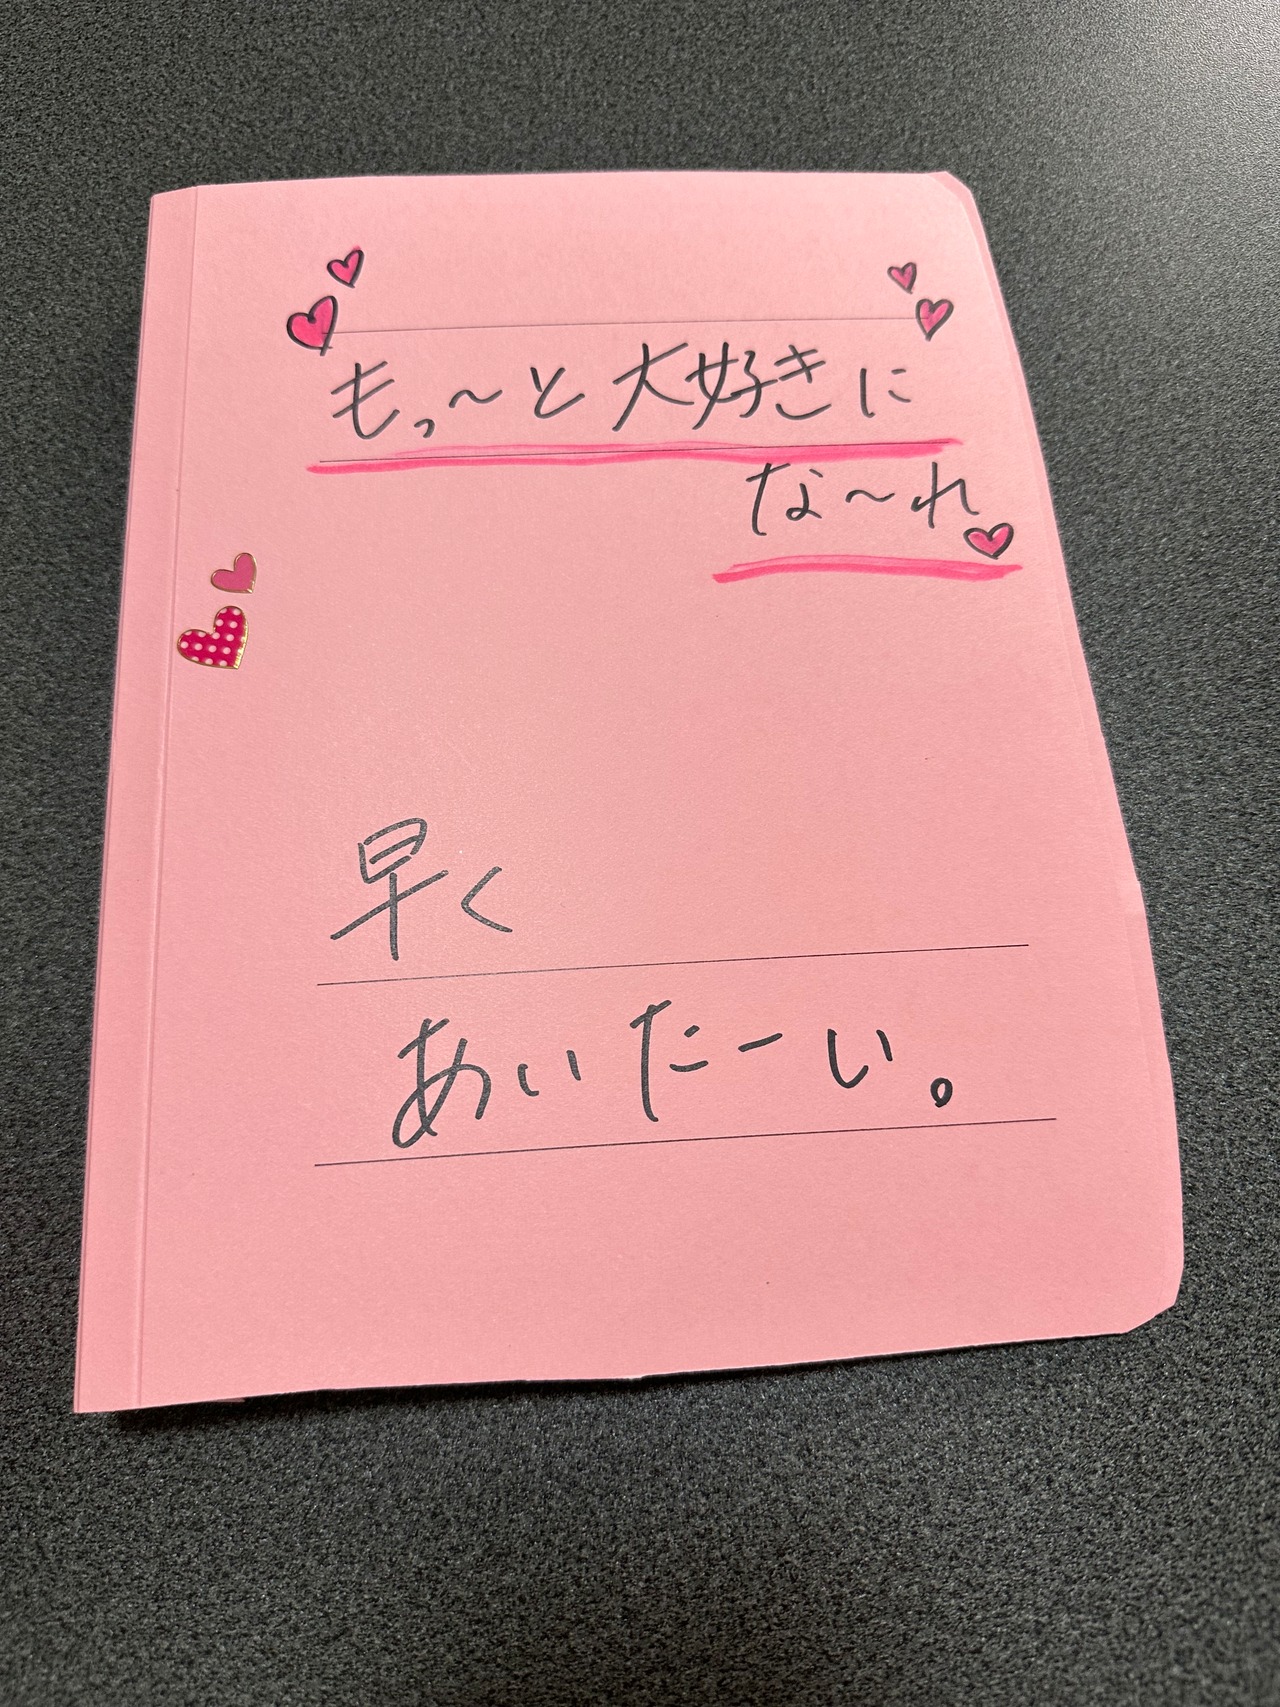 もっ〜と大好きに
な〜れ
早く
あいたーい。